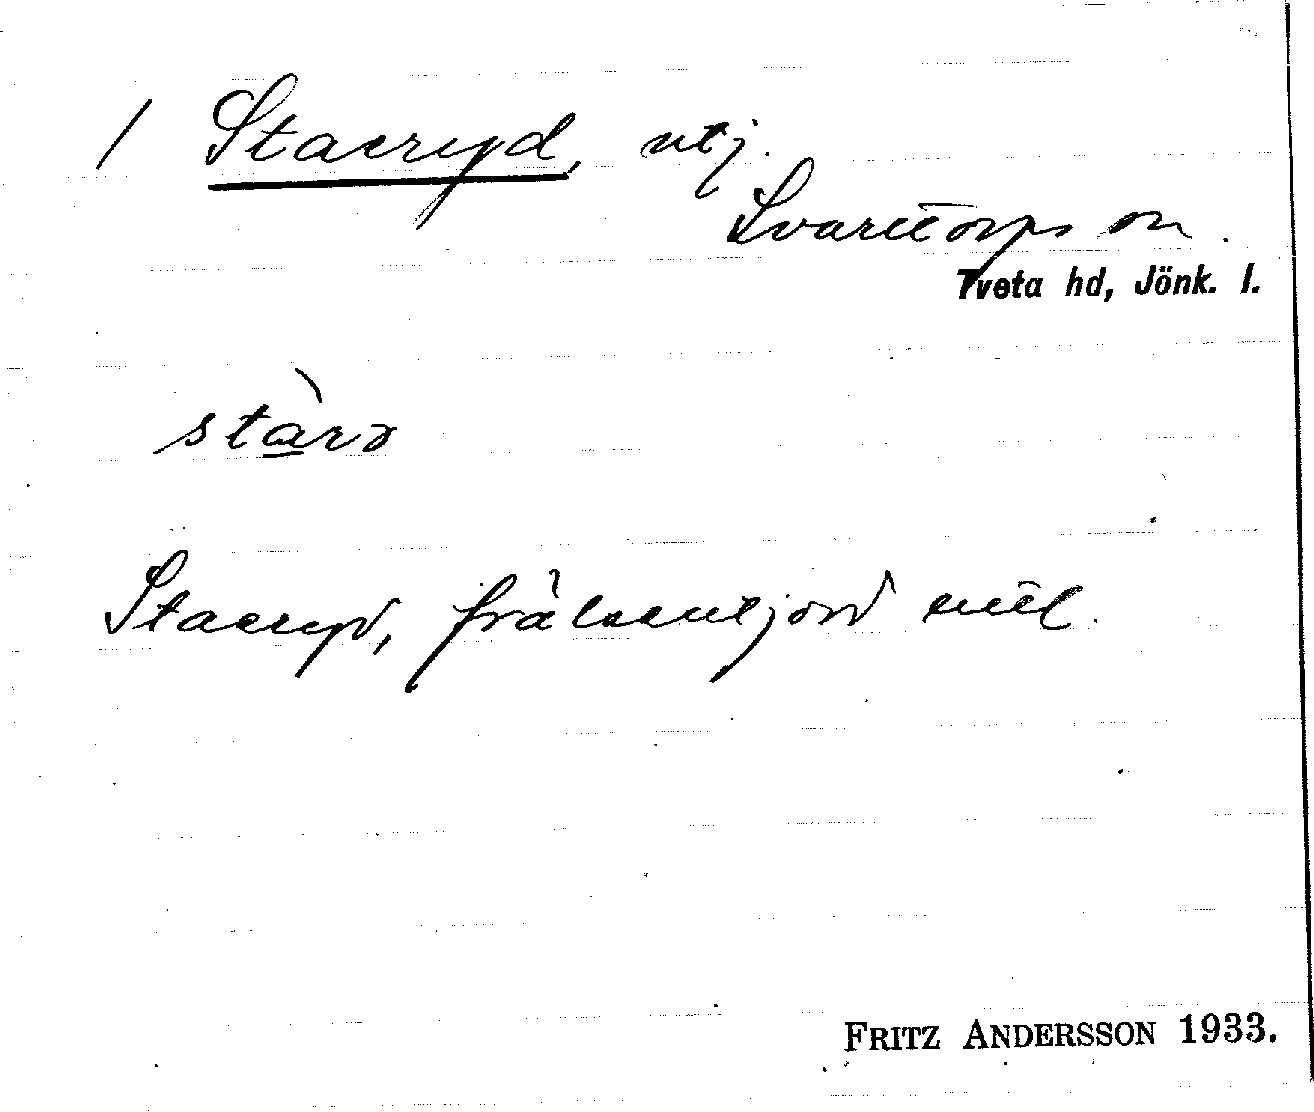 1 Stacryd, utj.
Svarttorps sn.
Tveta hd, Jönk. l.
stàrə
Stacryd, frälseutjord
FRITZ ANDERSSON 1933.